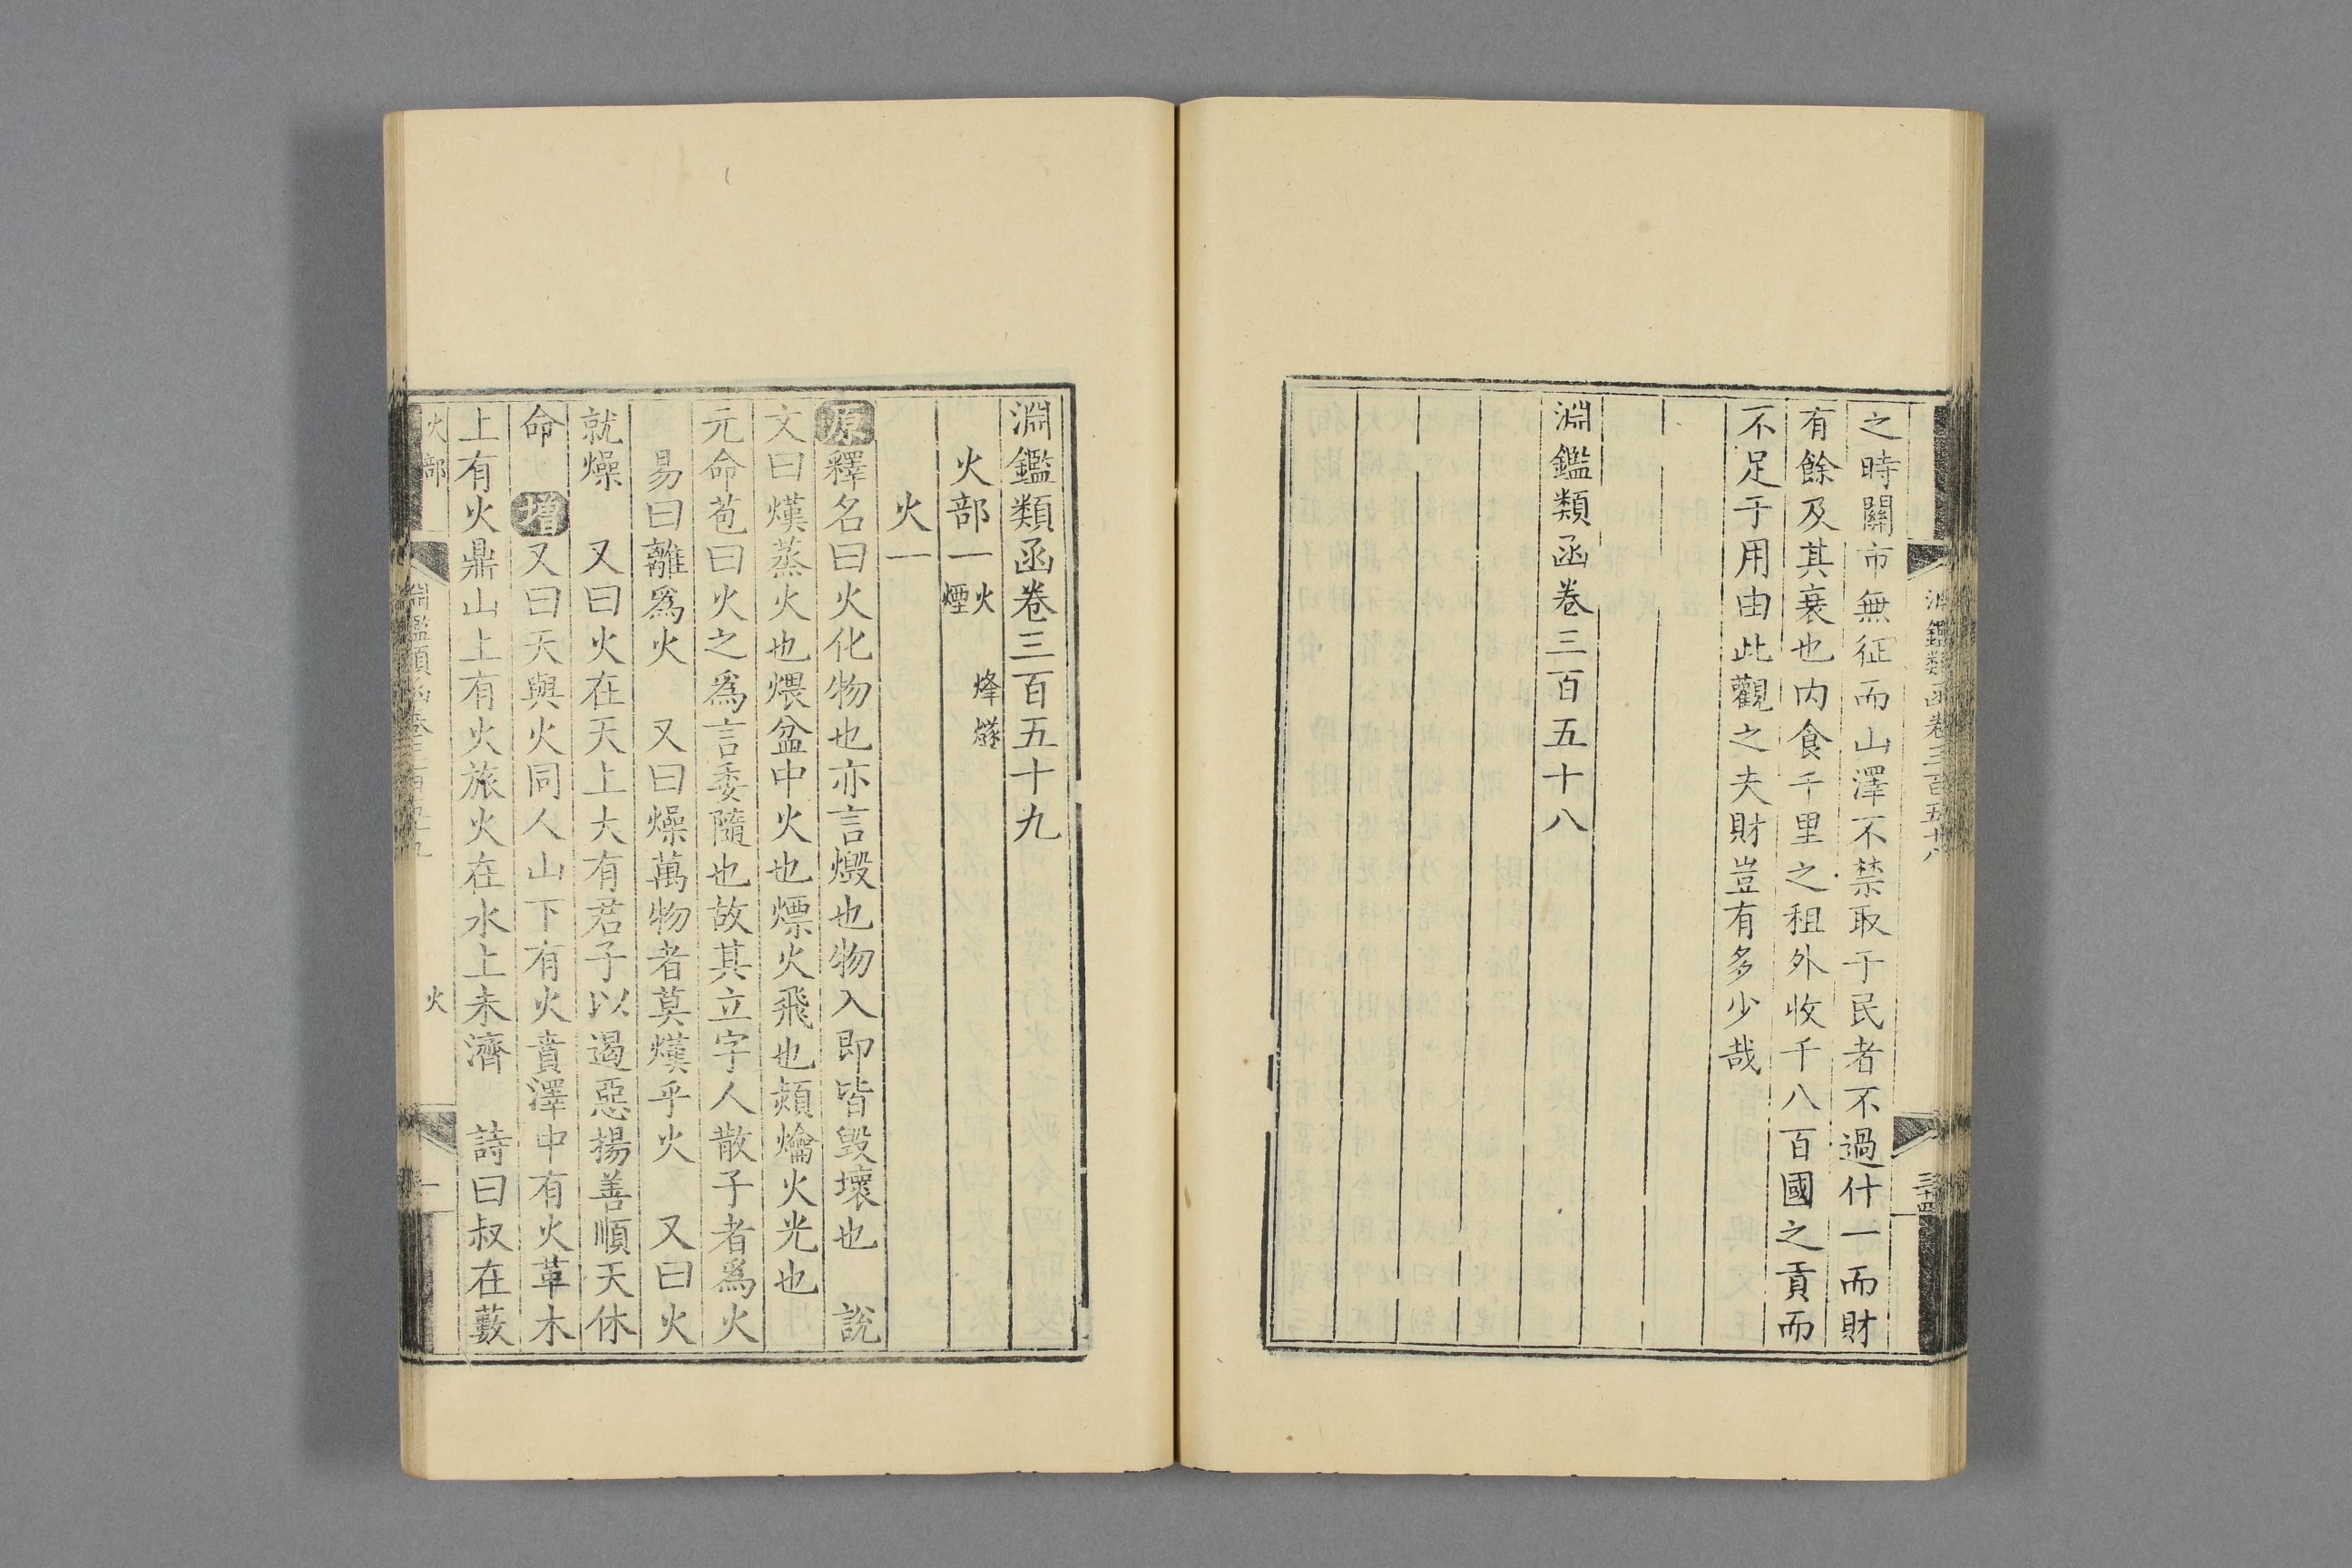 淵鑑類函卷三百五十八
三十四
之時關市無征而山澤不禁取于民者不過什一而財
有餘及其衰也内食千里之租外收千八百國之貢而
不足于用由此觀之夫財豈有多少哉
淵鑑類函卷三百五十八
淵鑑類函卷三百五十九
火部一 火 烽燧 煙
火一
原 釋名曰火化物也亦言燬也物入即皆毀壞也 說
文曰熯蒸火也煨盆中火也熛火飛也熲爚火光也
元命苞曰火之爲言委隨也故其立字人散子者爲火
易曰離爲火 又曰燥萬物者莫熯乎火 又曰火
就燥 又曰火在天上大有君子以遏惡揚善順天休
命 增 又曰天與火同人山下有火賁澤中有火革木
上有火鼎山上有火旅火在水上未濟 詩曰叔在藪
火部 淵鑑類函卷三百五十九 火 一